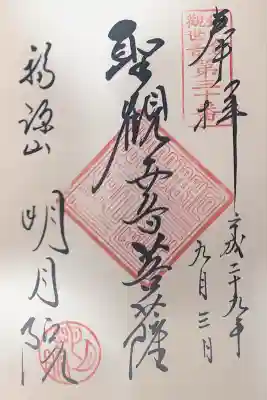 奉拝
平成二十九年九月三日
觀世音
第三十番
聖觀世音菩薩
福源山
明月院